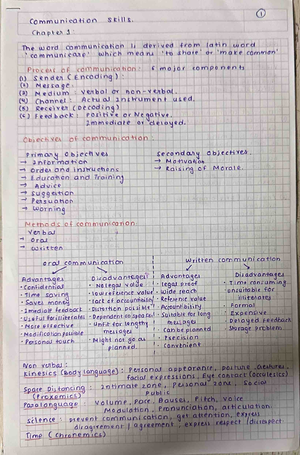 1
Communication Skills.
Chapter 1
The word communication is derived from latin word
'communicare' which means 'to share' or 'make common'
Process of communication: 6 major components
(1) Sender (Encoding):
(2) Message:
(3) Medium: Verbal or non-verbal.
(4) Channel: Actual Instrument used.
(5) Receiver (Decoding)
(6) Feedback: Positive or Negative.
Immediate or delayed.
Objectives of communication:
Primary Objectives
→ Information
→ Order and instructions
→ Education and Training
→ Advice
→ Suggestion
→ Persuation
→ Warning
Secondary Objectives.
→ Motivation
→ Raising of Morale.
Methods of communication:
Verbal
→ Oral
→ Written
Oral communication
Advantages
• Confidential
• Time saving
• Saves money
• Imediate feedback
• More effective
• Modification possible
• Personal touch
Disadvantages
• No legal value
• Low reference value
• Lack of accountability
• Distortion possible
• Unfit for lengthy
messages
• Might not go as
planned.
Written communication
Advantages
• legal proof
• Wide reach
• Reference value
• Accountibility
• Suitable for long
messages
• Can be planned
• Precision
• Convenient
Disadvantages
• Time consuming
• Unsuitable for
illiterates
• Formal
• Expensive
• Delayed feedback
• Storage problem.
Non verbal:
Kinesics (Body language): Personal apperance, posture, gestures,
facial expressions, Eye contact (occulesics)
Space Distancing: Intimate zone, Personal zone, Social
(Proxemics) Public
Paralanguage: Volume, Pace, Pauses, Pitch, Voice
Modulation, Pronunciation, articulation.
Silence: prevent communication, get attention, express
disagreement / agreement, express respect / disrespect
Time (Chronemics)